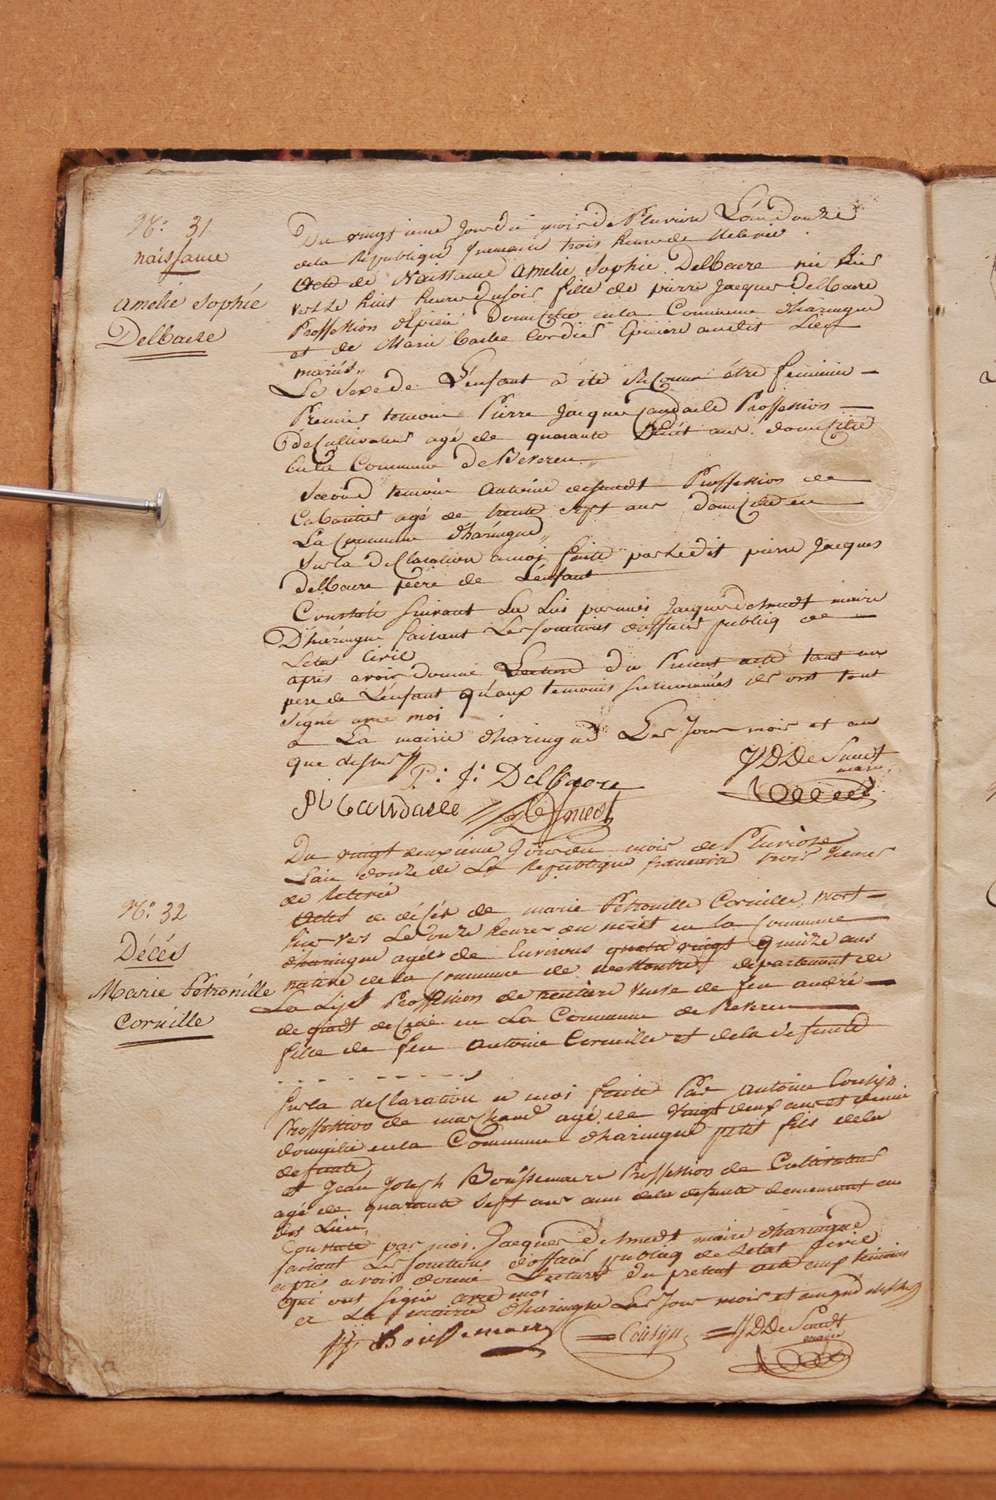 N.o 31
naissance
Amelie Sophie
Delbaere
Du vingtieme Jour du mois de Pluviose L'an douze
de la Republique francaise trois heure de relevée
Acte de Naissance Amelie Sophie Delbaere née hier
vers le huit heures du soir fille de pierre Jacques Delbaere
Proffession domicilié en la Commune d'haringue
et de Marie Cordier audit Lieu
mariés
Le Sexe de L'enfant à été reconnu être feminin
Premier temoin Pierre Jacque Candaele Proffession
de Cultivateur agé de quarante huit ans domicilié
en la Commune de Beveren
Second temoin Antoine desmedt Proffession de
Cabaretier agé de trente Sept ans domicilié en
La Commune d'haringue
Sur la declaration a moi faitte par Ledit pierre Jacques
Delbaere père de L'enfant
Constaté Suivant La Loi par moi Jacque Desmedt maire
D'haringue faisant Les fonctions d'officier publiq de
L'etat Civil
apres avoir donné Lecture du Present acte tant au
pere de L'enfant qu'aux temoins surnommés ils ont tout
Signé avec moi
a La mairie d'haringue Les Jour mois et an
que dessus
P: J: Delbaere
JDDeSmedt
maire
PJ Candaele
Desmedt
N.o 32
Décés
Marie Pétronille
Corneille
Du vingt deuxieme Jour du mois de Pluviose
L'an douze de La Republique francaise trois heures
de relevée
Acte de décès de marie Pétronille Corneille mort
hier vers Le onze heures du in La Commune
d'haringue agée de Environs quatre vingt quinze ans
native de la Commune de departement de
La Lijs Proffession de rentiere veuve de feu andré
de en La Commune de Beveren
fille de feu Antoine Corneille et de la defunte
. . . . . . . . . .
Sur la declaration a moi faitte Par Antoine Cousijn
Proffession de marchand agé de vingt deux ans et demie
domicilié en la Commune d'haringue petit fils de la
defunte
et Jean Joseph Boussemaere Proffession de Cultivateur
agé de quarante Sept ans ami de la defunte demeurant au
dit Lieu
Constaté par moi Jacques Desmedt maire d'haringue
faisant Les fonctions d'officier publiq de L'etat Civil
apres avoir donné Lecture du present acte aux temoins
qui ont signé avec moi
a La mairie d'haringue Les Jour mois et an que dessus
JJ Boussemaere
Cousijn
JDDeSmedt
maire